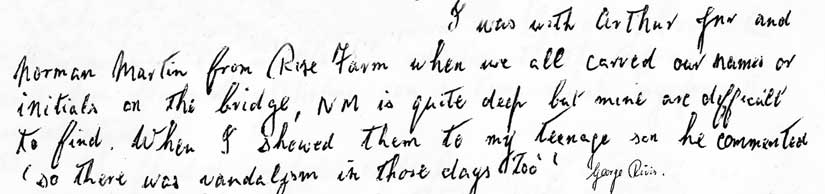 I was with Arthur and
Norman Martin from Rise Farm when we all carved our names or
initials on the bridge, NM is quite deep but mine are difficult
to find. When I showed them to my teenage son he commented
'so there was vandalysm in those days too' George